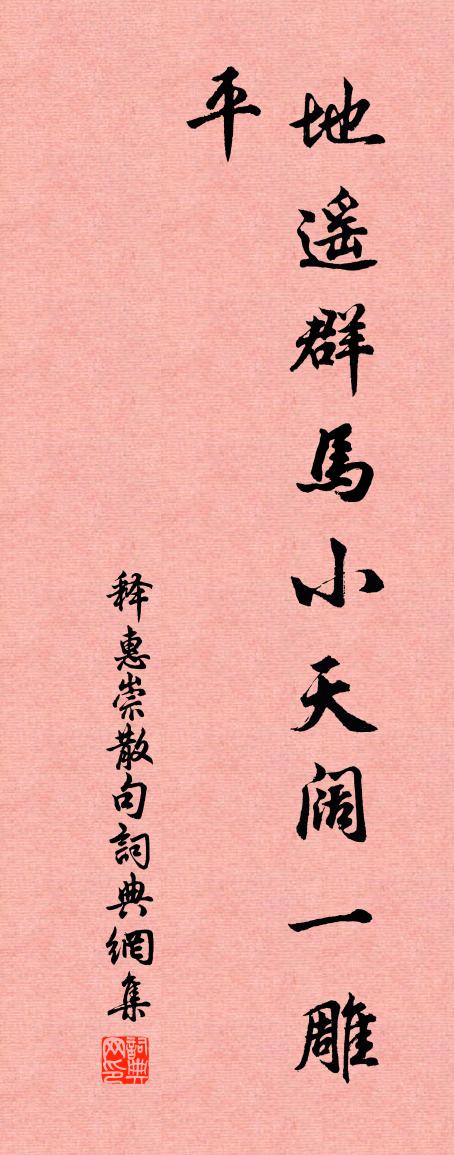 地遥群馬小天阔一雕
平
释惠崇散句詞典網集
詞典网印